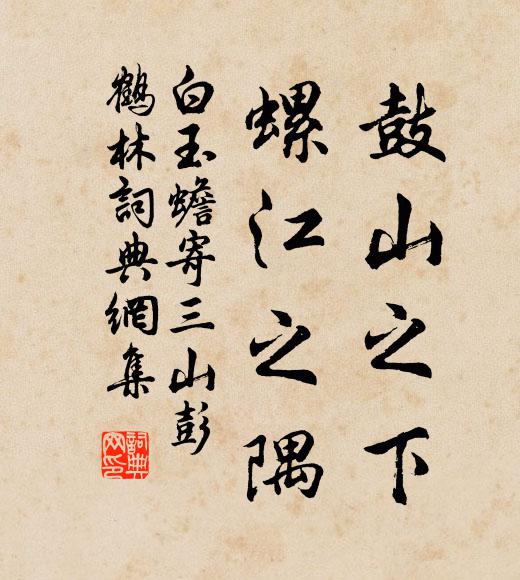 鼓山之下
螺江之隅
白玉蟾寄三山彭
鶴林詞典網集
詞典
网印